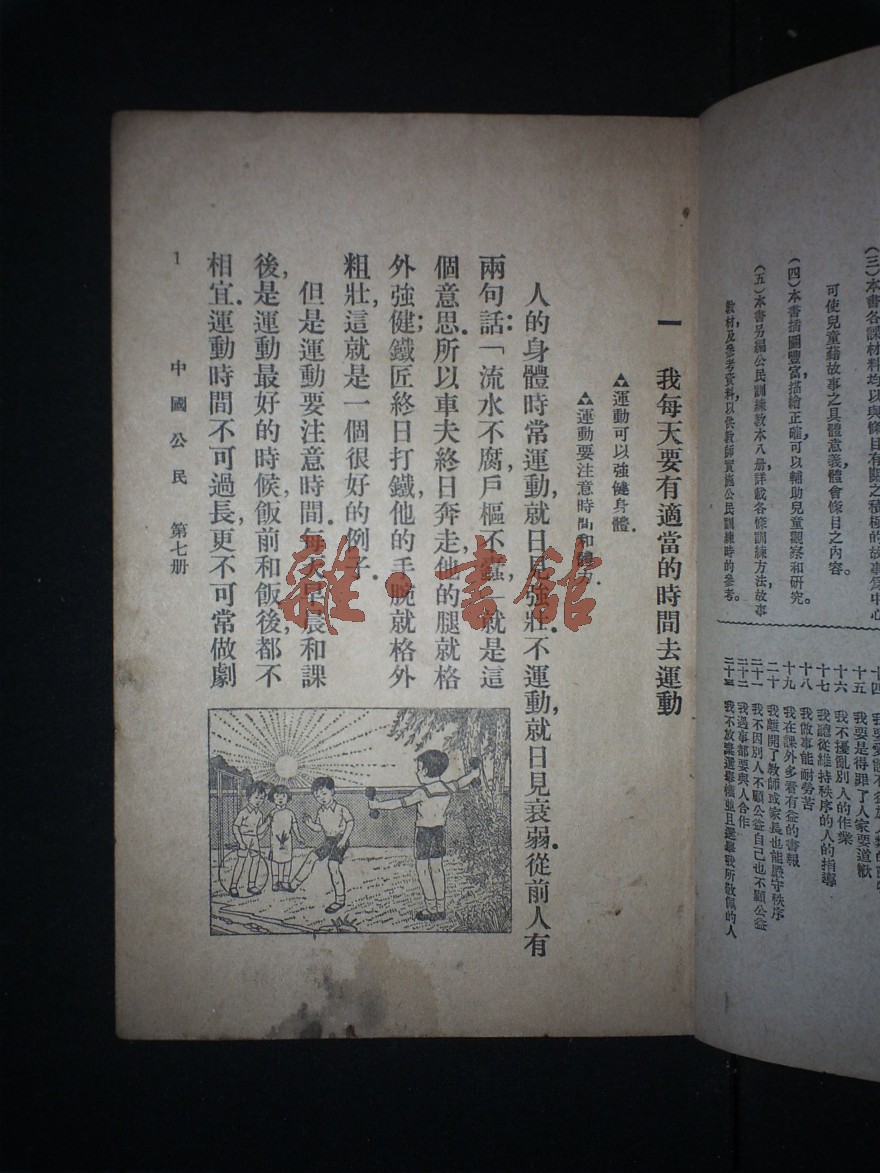 (三)本書各課材料均以與條目有關之積極的故事爲中心
可使兒童藉故事之具體意義,體會條目之內容。
(四)本書插圖豐富,描繪正確,可以輔助兒童觀察和研究。
(五)本書另編公民訓練教本八册,詳載各條訓練方法,故事
教材,及參考資料,以供教師實施公民訓練時的參考。
十四
十五 我要是得罪了人家要道歉
十六 我不擾亂別人的作業
十七 我聽從維持秩序的人的指導
十八 我做事能耐勞苦
十九 我在課外多看有益的書報
二十 我離開了教師或家長也能嚴守秩序
二十一 我不因別人不顧公益自己也不顧公益
二十二 我遇事都要與人合作
二十三 我不放棄選舉權並且選舉我所敬佩的人
一 我每天要有適當的時間去運動
運動可以強健身體.
運動要注意時間和體力.
人的身體時常運動,就日見強壯.不運動,就日見衰弱.從前人有
兩句話:「流水不腐,戶樞不蠹」就是這
個意思.所以車夫終日奔走,他的腿就格
外強健;鐵匠終日打鐵,他的手腕就格外
粗壯,這就是一個很好的例子.
但是運動要注意時間.每天早晨和課
後,是運動最好的時候,飯前和飯後,都不
相宜.運動時間不可過長,更不可常做劇
1 中國公民 第七册
雜·書館